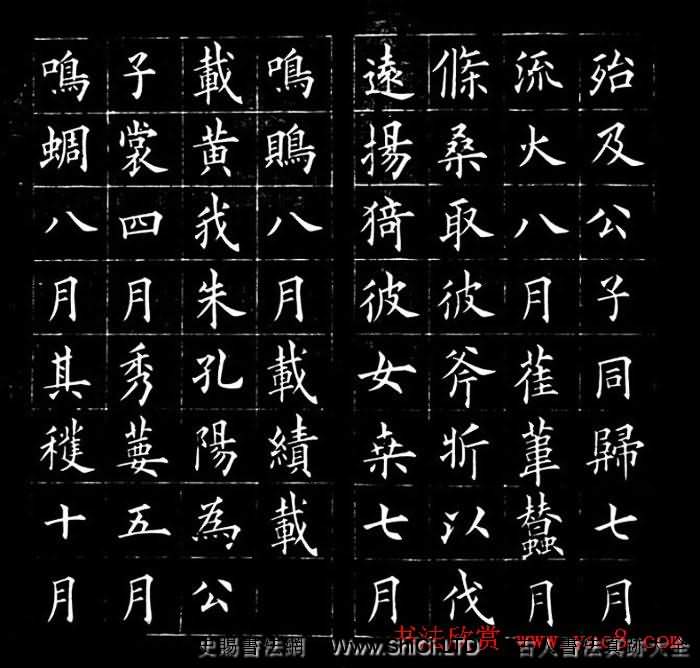 殆及公子同歸七月
流火八月萑葦蠶月
條桑取彼斧斨以伐
遠揚猗彼女桒七月
鳴鵙八月載績載
載黃我朱孔陽為公
子裳四月秀葽五月
鳴蜩八月其穫十月
书法欣赏 www.yac8.com
史賜書法網 www.ShiCi.LTD 古人書法真跡大全